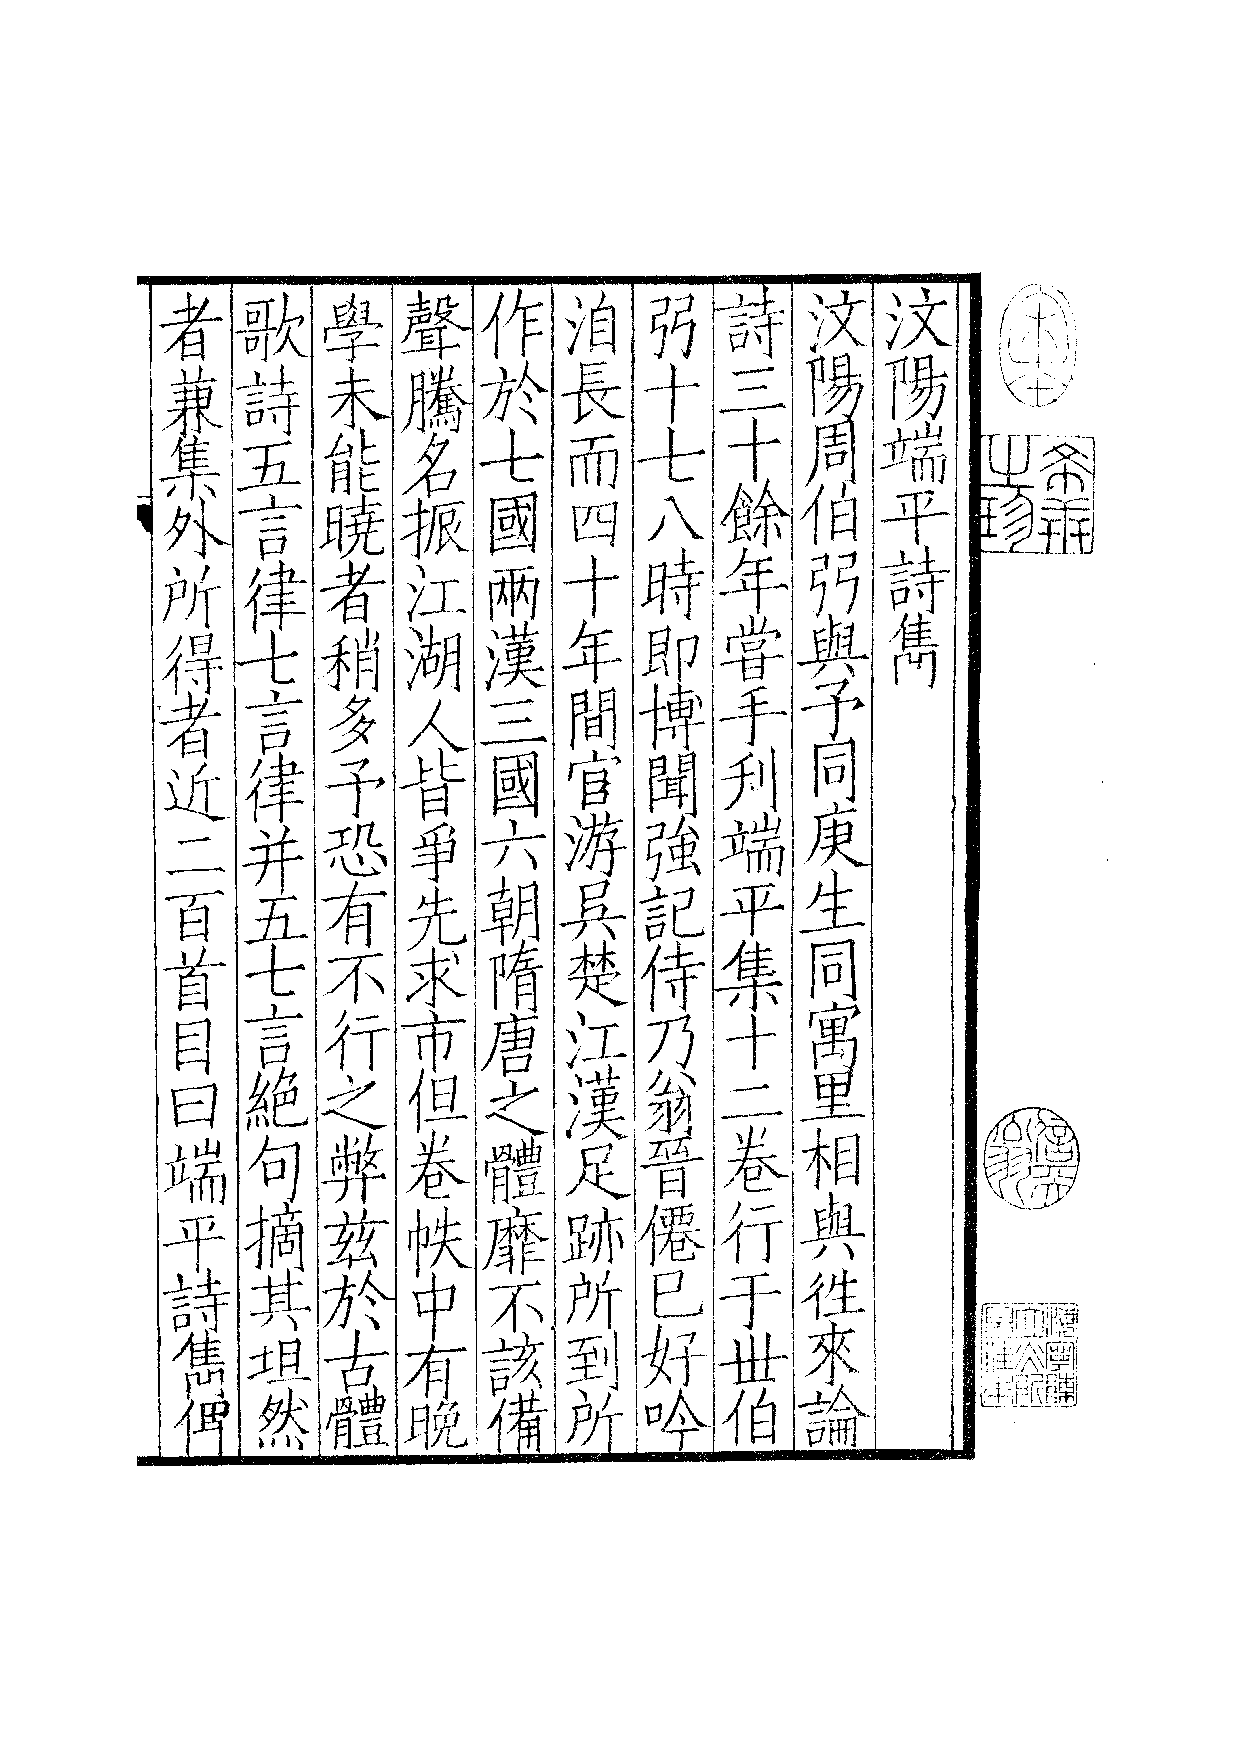 汶陽端平詩雋
汶陽周伯弜與予同庚生同寓里相與徃來論
詩三十餘年嘗手刋端平集十二卷行于丗伯
弜十七八時即博聞強記侍乃翁晉僊已好吟
洎長而四十年間宦游吳楚江漢足跡所到所
作於七國兩漢三國六朝隋唐之體靡不該備
聲騰名振江湖人皆爭先求市但卷帙中有晚
學未能曉者稍多予恐有不行之弊茲於古體
歌詩五言律七言律并五七言絕句摘其坦然
者兼集外所得者近二百首目曰端平詩雋俾